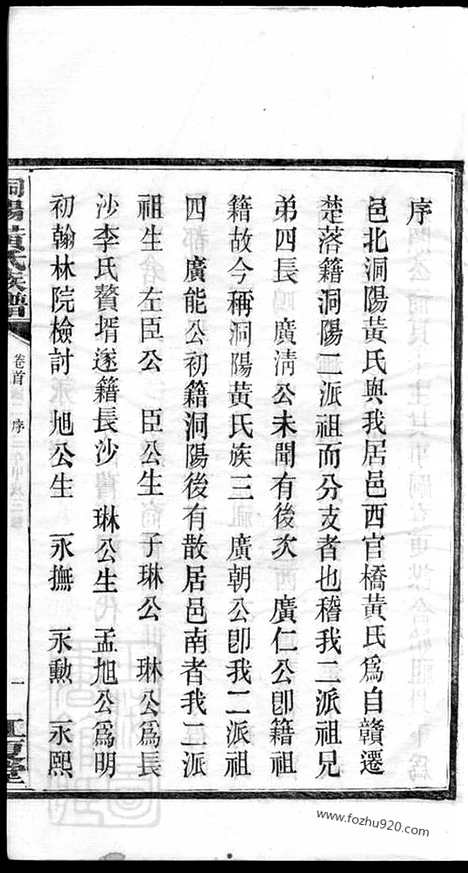 序
邑北洞陽黃氏與我居邑西官橋黃氏為自贛遷
楚落籍洞陽二派祖而分支者也稽我二派祖兄
弟四長 廣淸公未聞有後次 廣仁公卽籍祖
籍故今稱洞陽黃氏族三 廣朝公卽我二派祖
四 廣能公初籍洞陽後有散居邑南者我二派
祖生 左臣公 臣公生 子琳公 琳公為長
沙李氏贅壻遂籍長沙 琳公生 孟旭公為明
初翰林院檢討 旭公生 永撫 永勳 永熙
洞陽黃氏族譜
卷首
序
一
江夏堂
www.fozhu920.com